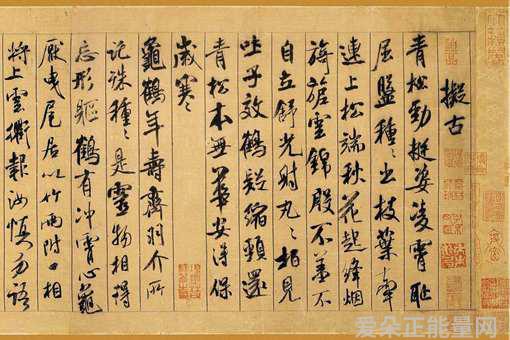 擬古
青松勁挺姿凌霄恥
屈盤種〻出枝葉牽
連上松端秋花起絳烟
旖旎雲錦殷不羞不
自立舒光射丸〻柏見
吐子效鶴疑縮頸還
青松本無華安得保
歲寒
龜鶴年壽齊羽介所
託殊種〻是靈物相得
忘形軀鶴有冲霄心龜
厭曳尾居以竹兩附口相
將上雲衢報汝慎勿語
爱朵正能量网